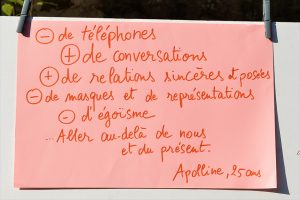 ⊖ de téléphones
⊕ de conversations
⊕ de relations sincères et posées
⊖ de masques et de représentations
⊖ d'égoïsme
... Aller au-delà de nous
et du présent.
Apolline, 25 ans